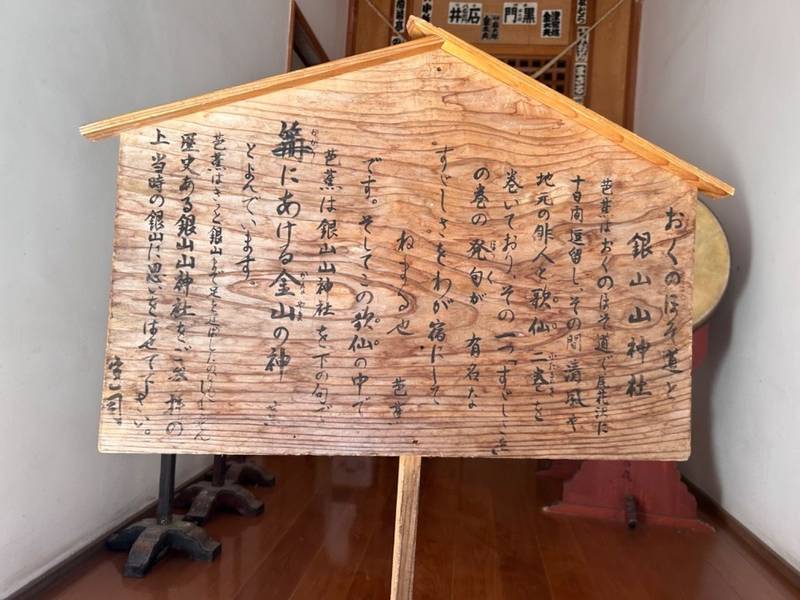 おくのほそ道と
銀山山神社
芭蕉はおくのほそ道で尾花沢に
十日間逗留し、その間清風や
地元の俳人と歌仙二巻を
巻いており、その一つすゞしさを
の巻の発句が 有名な
すゞしさをわが宿にして
ねまる也 芭蕉
です。そしてこの歌仙の中で
芭蕉は銀山山神社を下の句で
篝にあける金山の神
とよんでいます。
芭蕉はきっと銀山まで足を
歴史ある銀山山神社をご参拝の
上 当時の銀山に思いをはせて下さい。
宮司
黒門
石井